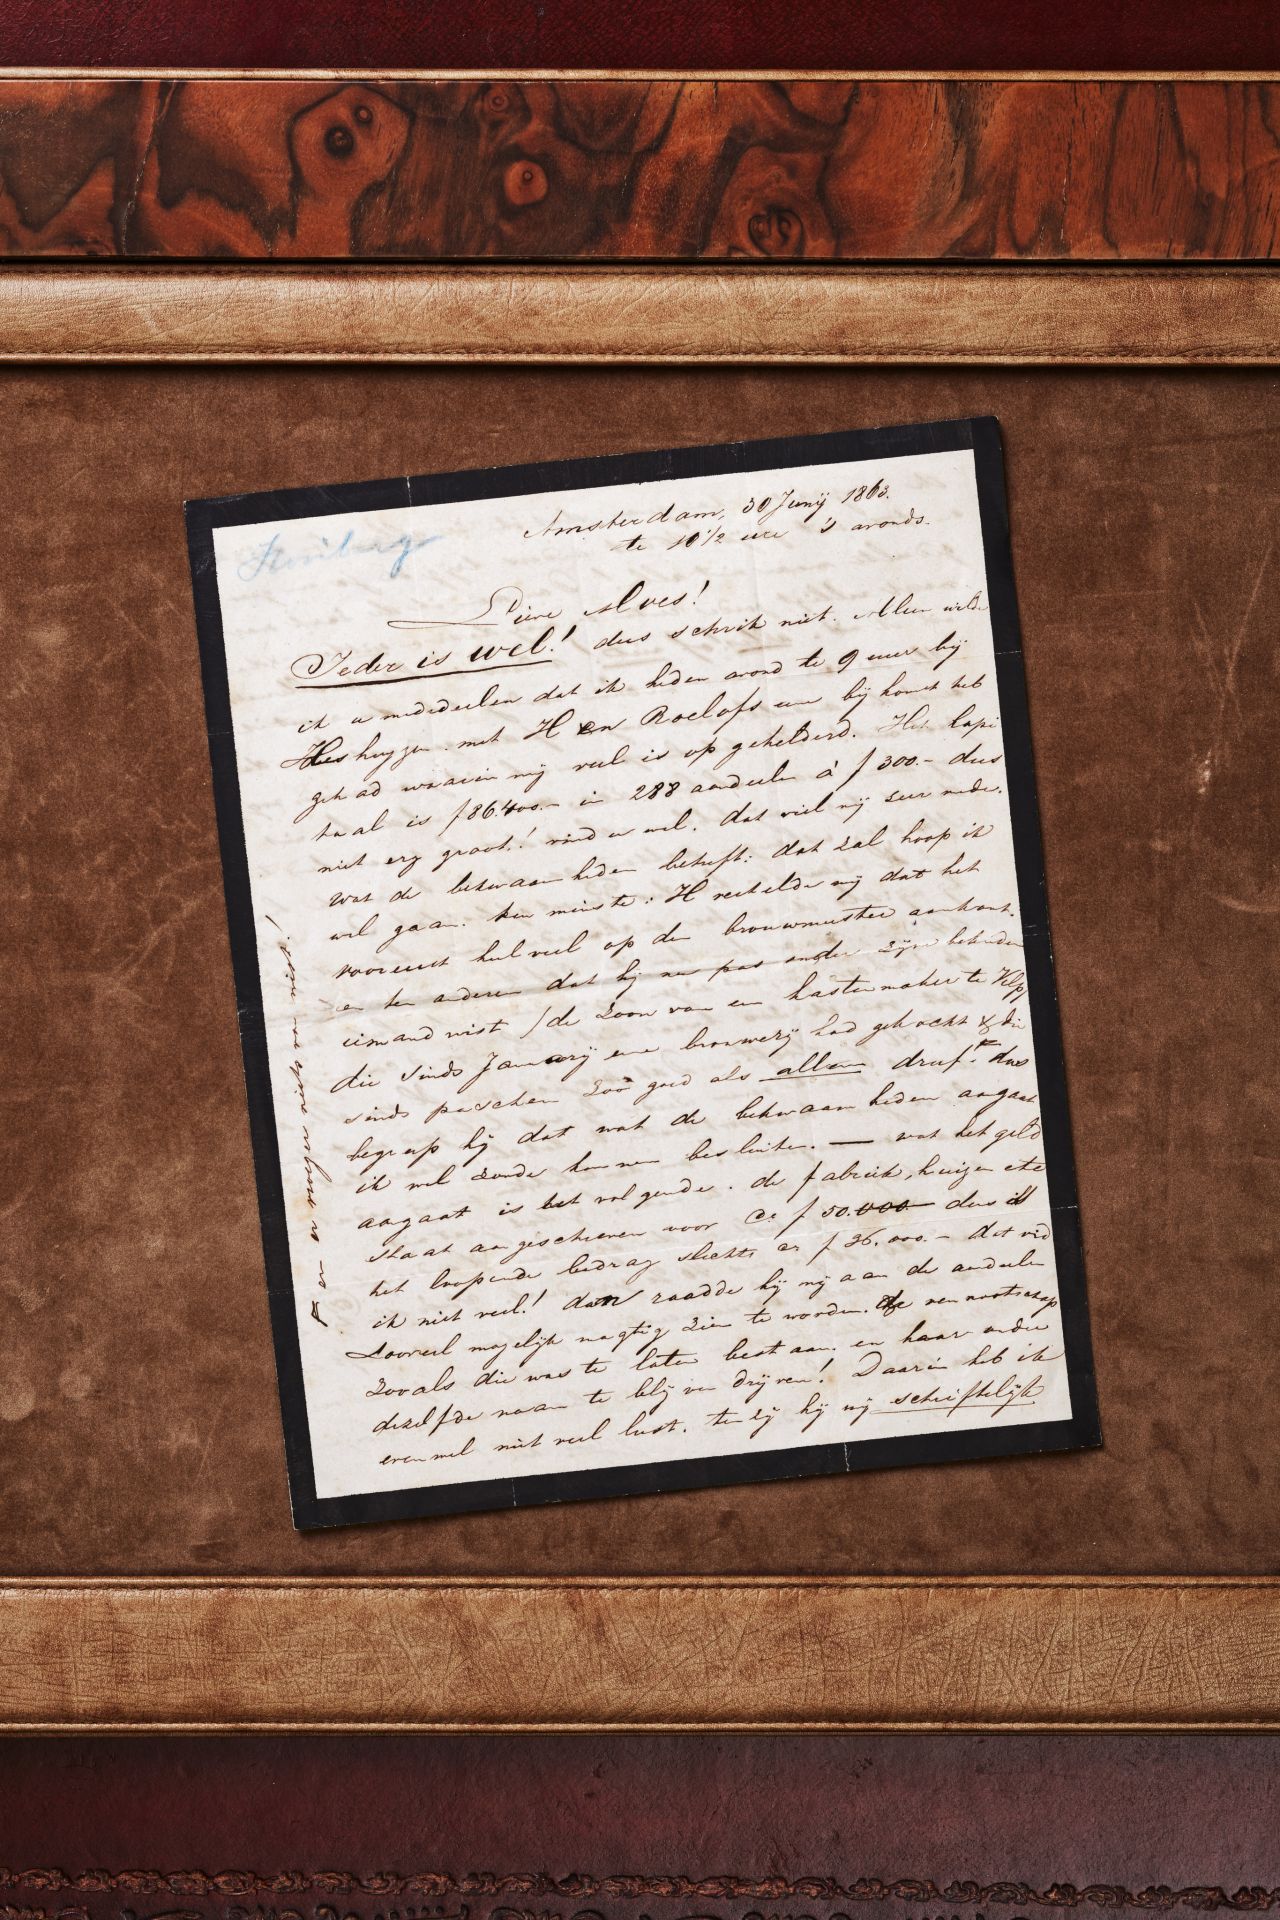 Amsterdam, 30 Junij 1863.
te 10 1/2 ure 's avonds.
Lieve Alves!
Ieder is wel! dus schrik niet. Alleen wilde
ik u mededeelen dat ik heden avond te 9 uur bij
Heshuyzen met H en Roelofs een bij komst heb
gehad waarin mij veel is op gehelderd. Het kapi
taal is f 86.400.- in 288 aandeelen á f 300.- dus
niet erg groot! vind u wel. dat viel mij zeer mede.
wat de bekwaamheden betreft: dat zal hoop ik
wel gaan. ten minste: H vertelde mij dat het
vooreerst heel veel op den brouwmeester aankomt.
en ten anderen dat hij nu pas onder zijne bekenden
iemand wist /de zoon van een kastenmaker te Velp/
die sinds Januarij eene brouwerij had gekocht & die
sinds paschen zoo goed als alleen dreef. F dus
begreep hij dat wat de bekwaamheden aangaat
ik wel zoude kunnen besluiten. — wat het geld
aangaat is het volgende. de fabriek, huizen etc
staat aangeschreven voor Ca f 50.000 dus is
het loopende bedrag slechts ca f 36.000.- dat vind
ik niet veel! dan raadde hij mij aan de aandeelen
zooveel mogelijk magtig zien te worden. de vennootschap
zooals die was te laten bestaan. en haar onder
dezelfde naam te blijven drijven! Daarin heb ik
evenwel niet veel lust. ten zij hij mij schriftelijk
F en er vroeger niets van wist!